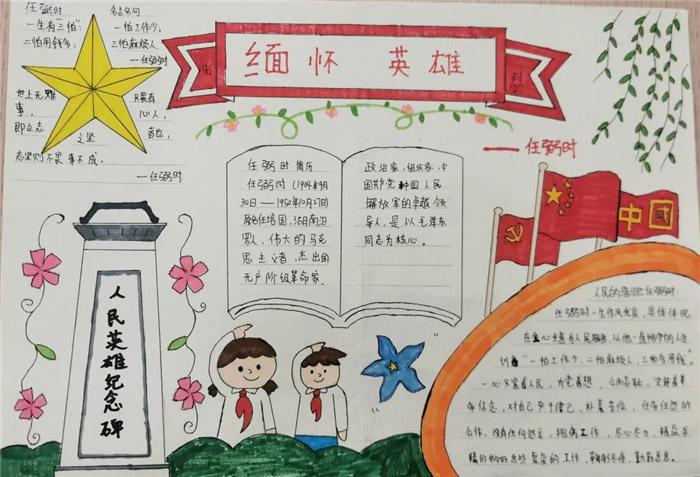 缅怀 英雄
——任弼时
任弼时 名言名句
一生有"三怕":一怕工作少,
二怕用钱多; 三怕麻烦人.
——任弼时
世上无难事,
即立志之坚
志坚则不畏事不成。
——任弼时
任弼时 简历
任弼时(1904年4月
30日—1950年10月27日)
原名任培国,湖南汨
罗人,伟大的马克
思主义者,杰出的
无产阶级革命家.
政治家,组织家,中
国共产党和中国人民
解放军的卓越领
导人,是以毛泽东
同志为核心。
中国
人民英雄纪念碑
人民的骆驼任弼时:
任弼时一生作风优良,具体体现
在真心全意为人民服务,从他
"一怕工作少,二怕麻烦人,三怕多用钱。
一心只装着人民,为党着想,
对自己严于律己,
工作,没有任何怨言,抱病工作,尽心尽力,
工作,鞠躬尽瘁,勤勤恳恳。